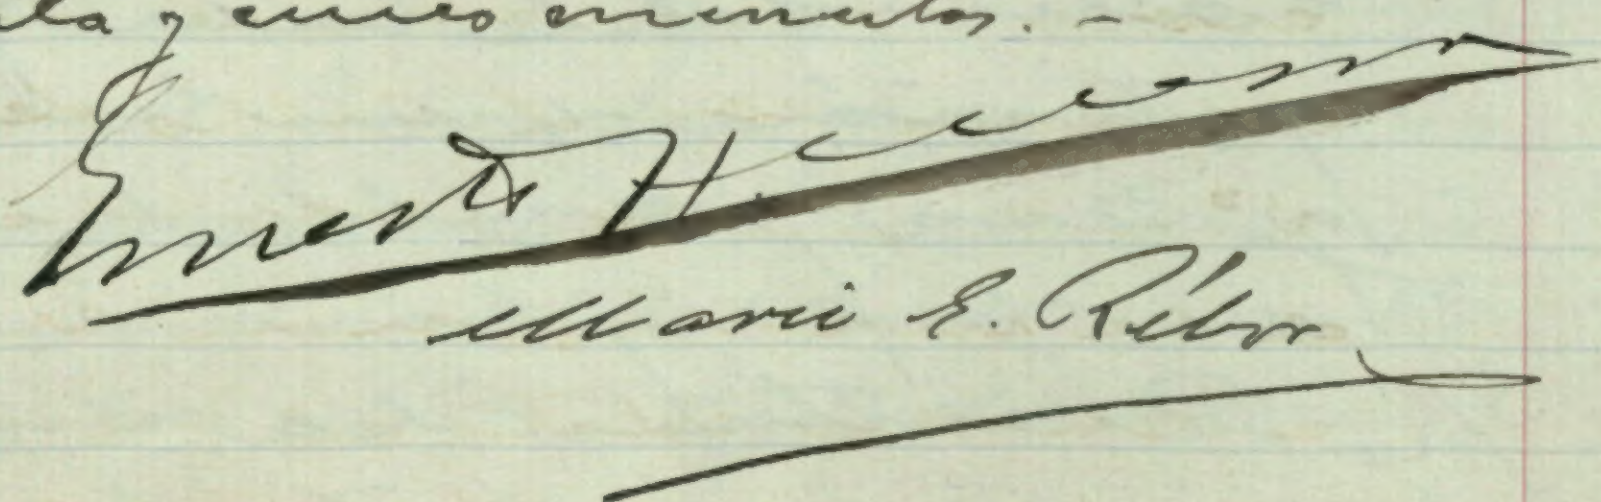 y cinco minutos. -
Ernesto H.
Mario E. Rébor